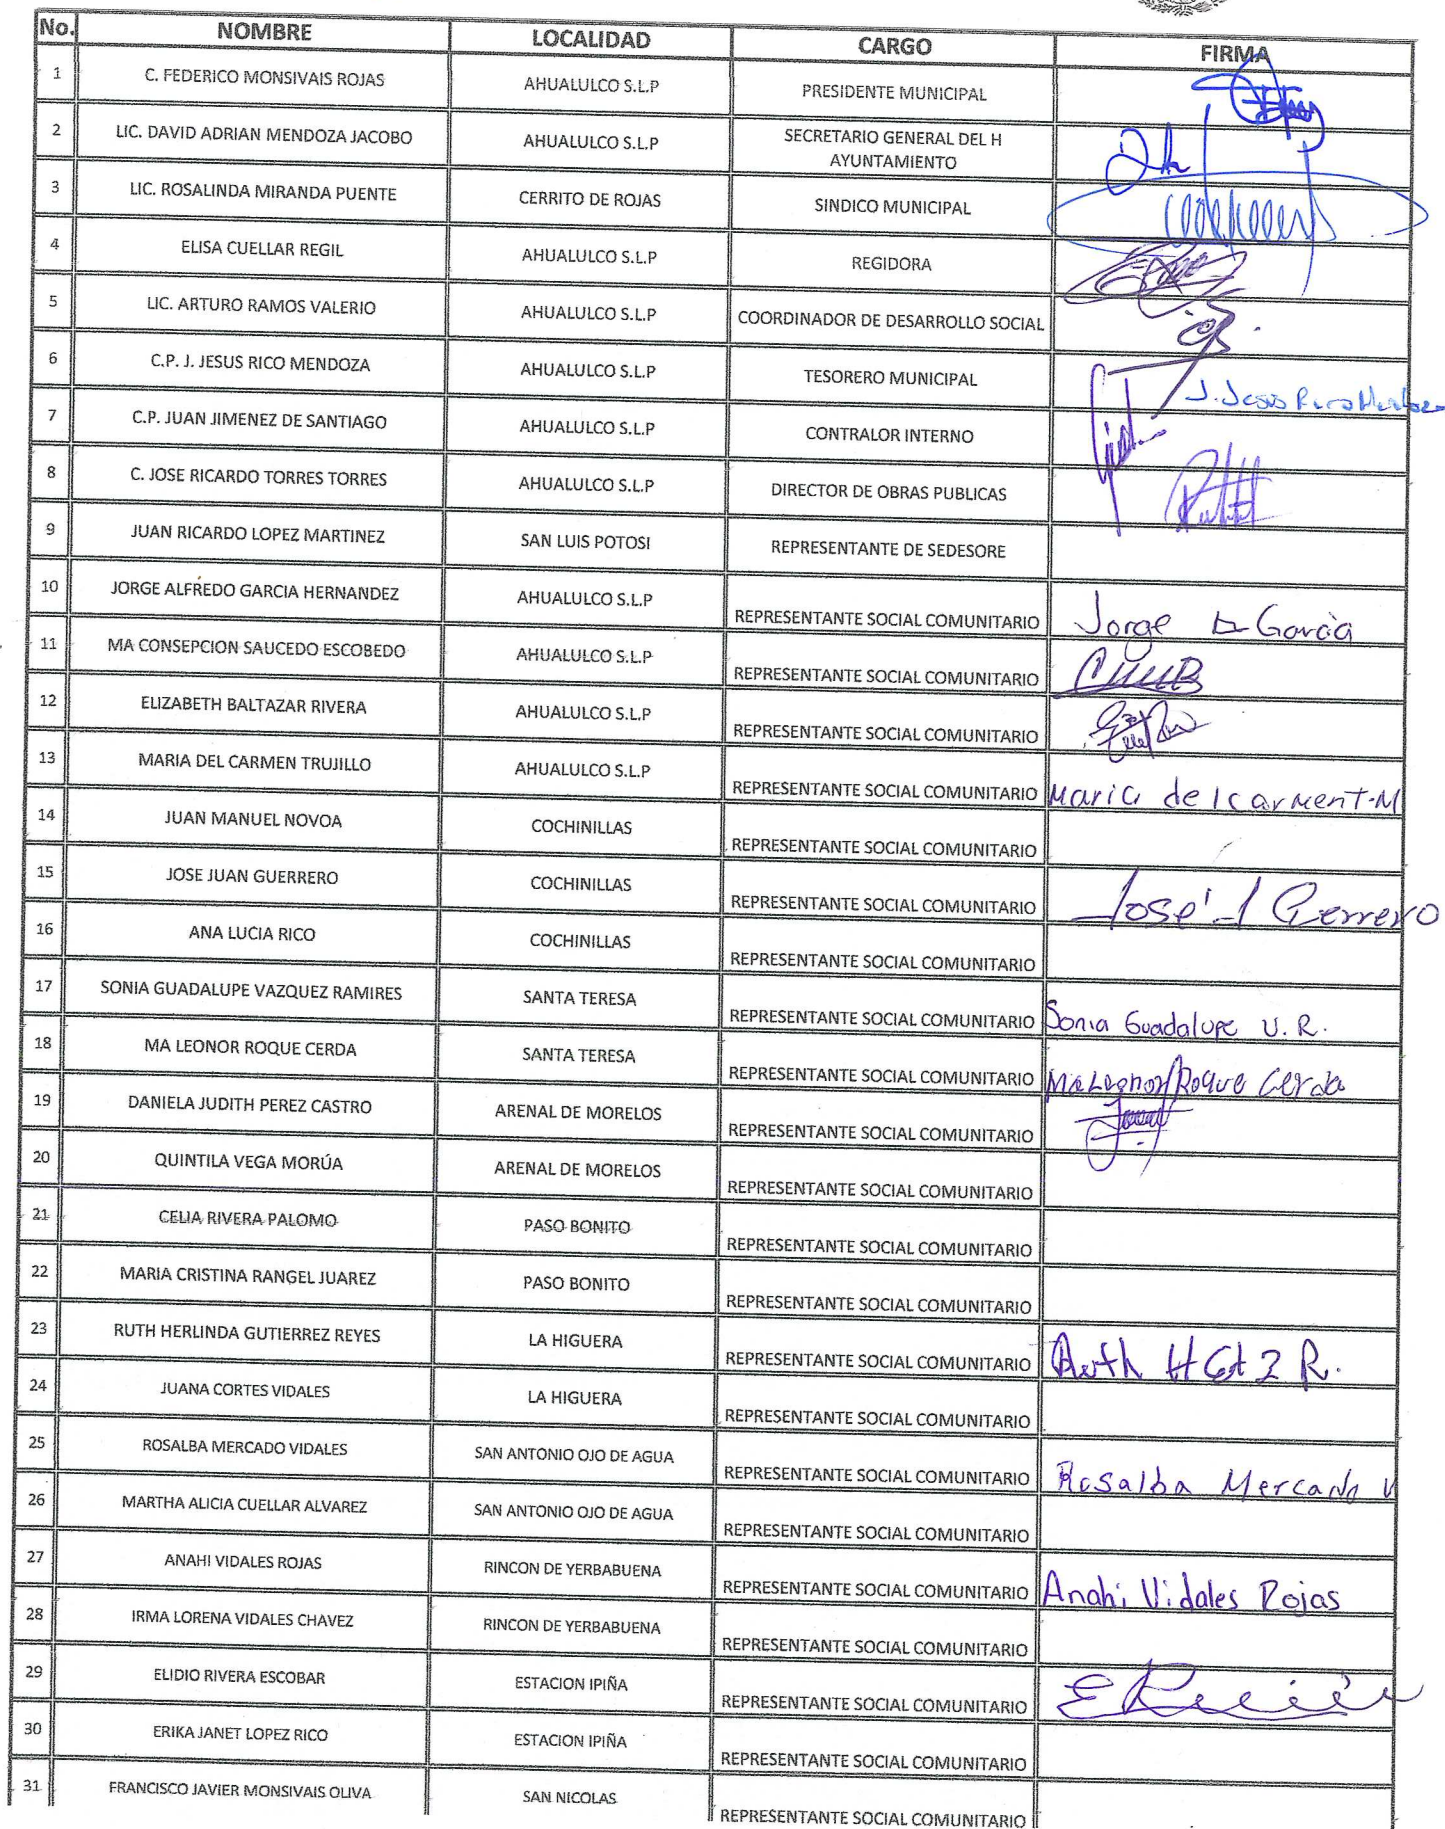 No. NOMBRE LOCALIDAD CARGO FIRMA
1 C. FEDERICO MONSIVAIS ROJAS AHUALULCO S.L.P PRESIDENTE MUNICIPAL
2 LIC. DAVID ADRIAN MENDOZA JACOBO AHUALULCO S.L.P SECRETARIO GENERAL DEL H
AYUNTAMIENTO
3 LIC. ROSALINDA MIRANDA PUENTE CERRITO DE ROJAS SINDICO MUNICIPAL
4 ELISA CUELLAR REGIL AHUALULCO S.L.P REGIDORA
5 LIC. ARTURO RAMOS VALERIO AHUALULCO S.L.P COORDINADOR DE DESARROLLO SOCIAL
6 C.P. J. JESUS RICO MENDOZA AHUALULCO S.L.P TESORERO MUNICIPAL J. Jesus Rico
7 C.P. JUAN JIMENEZ DE SANTIAGO AHUALULCO S.L.P CONTRALOR INTERNO
8 C. JOSE RICARDO TORRES TORRES AHUALULCO S.L.P DIRECTOR DE OBRAS PUBLICAS
9 JUAN RICARDO LOPEZ MARTINEZ SAN LUIS POTOSI REPRESENTANTE DE SEDESORE
10 JORGE ALFREDO GARCIA HERNANDEZ AHUALULCO S.L.P REPRESENTANTE SOCIAL COMUNITARIO Jorge A Garcia
11 MA CONSEPCION SAUCEDO ESCOBEDO AHUALULCO S.L.P REPRESENTANTE SOCIAL COMUNITARIO
12 ELIZABETH BALTAZAR RIVERA AHUALULCO S.L.P REPRESENTANTE SOCIAL COMUNITARIO
13 MARIA DEL CARMEN TRUJILLO AHUALULCO S.L.P REPRESENTANTE SOCIAL COMUNITARIO Maria del carmen T.M
14 JUAN MANUEL NOVOA COCHINILLAS REPRESENTANTE SOCIAL COMUNITARIO
15 JOSE JUAN GUERRERO COCHINILLAS REPRESENTANTE SOCIAL COMUNITARIO José J Gerrero
16 ANA LUCIA RICO COCHINILLAS REPRESENTANTE SOCIAL COMUNITARIO
17 SONIA GUADALUPE VAZQUEZ RAMIRES SANTA TERESA REPRESENTANTE SOCIAL COMUNITARIO Sonia Guadalupe V. R.
18 MA LEONOR ROQUE CERDA SANTA TERESA REPRESENTANTE SOCIAL COMUNITARIO Ma Leonor Roque Cerda
19 DANIELA JUDITH PEREZ CASTRO ARENAL DE MORELOS REPRESENTANTE SOCIAL COMUNITARIO
20 QUINTILA VEGA MORÚA ARENAL DE MORELOS REPRESENTANTE SOCIAL COMUNITARIO
21 CELIA RIVERA PALOMO PASO BONITO REPRESENTANTE SOCIAL COMUNITARIO
22 MARIA CRISTINA RANGEL JUAREZ PASO BONITO REPRESENTANTE SOCIAL COMUNITARIO
23 RUTH HERLINDA GUTIERREZ REYES LA HIGUERA REPRESENTANTE SOCIAL COMUNITARIO Ruth H Gtz R.
24 JUANA CORTES VIDALES LA HIGUERA REPRESENTANTE SOCIAL COMUNITARIO
25 ROSALBA MERCADO VIDALES SAN ANTONIO OJO DE AGUA REPRESENTANTE SOCIAL COMUNITARIO Rosalba Mercado V
26 MARTHA ALICIA CUELLAR ALVAREZ SAN ANTONIO OJO DE AGUA REPRESENTANTE SOCIAL COMUNITARIO
27 ANAHI VIDALES ROJAS RINCON DE YERBABUENA REPRESENTANTE SOCIAL COMUNITARIO Anahi Vidales Rojas
28 IRMA LORENA VIDALES CHAVEZ RINCON DE YERBABUENA REPRESENTANTE SOCIAL COMUNITARIO
29 ELIDIO RIVERA ESCOBAR ESTACION IPIÑA REPRESENTANTE SOCIAL COMUNITARIO
30 ERIKA JANET LOPEZ RICO ESTACION IPIÑA REPRESENTANTE SOCIAL COMUNITARIO
31 FRANCISCO JAVIER MONSIVAIS OLIVA SAN NICOLAS REPRESENTANTE SOCIAL COMUNITARIO